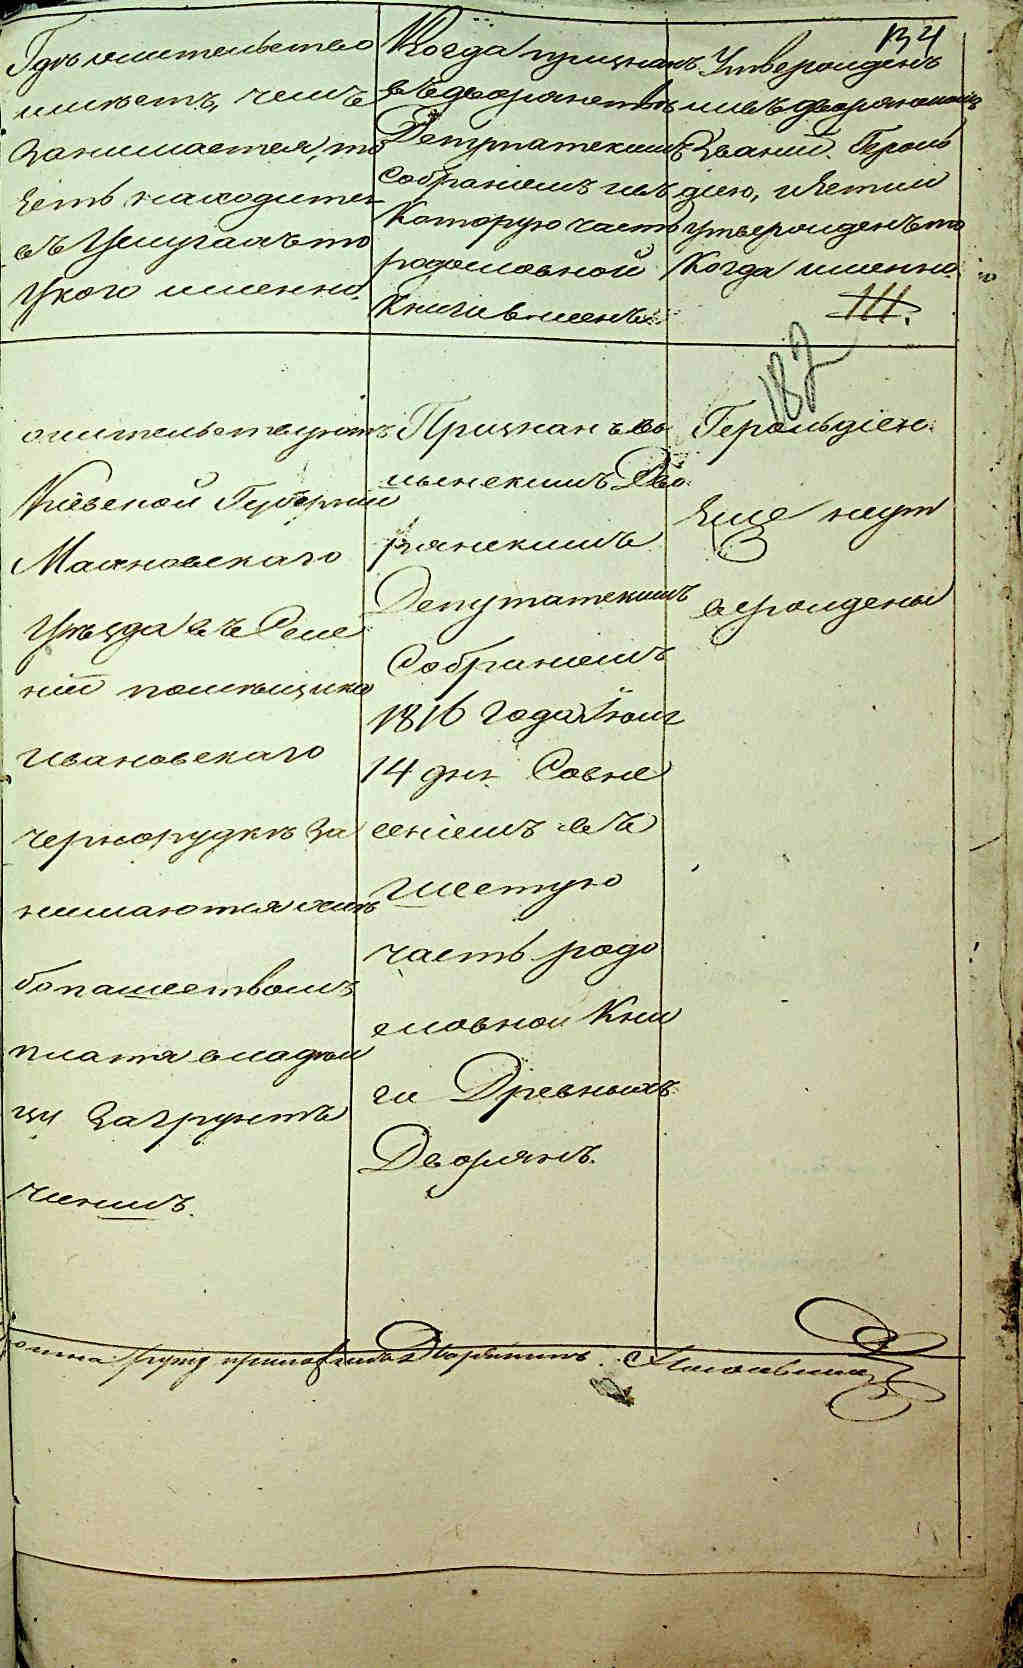 134
Где жительство
имѣетъ, чемъ
Занимается, то
Есть находится
въ Услугахъ то
У кого именно.
Когда признанъ
въ дворянствѣ
Депутатскимъ
Собраніемъ и въ
Которую часть
родословной
Книги внесенъ
Утвержденъ
ли въ дворянскомъ
Званіи Героль
діею, и Естли
утвержденъ то
Когда именно.
III.
182
жительствуютъ
Кіевской Губерніи
Махновскаго
Уѣзда въ Селе
ніи помѣщика
Ивановскаго
Чернорудкѣ За
нимаются хлѣ
бопашествомъ
платя владѣл
цу За грунтъ
чиншъ.
Признанъ Во
лынскимъ Дво
рянскимъ
Депутатскимъ
Собраніемъ
1816 года Іюня
14 дня Совне
сеніемъ въ
шестую
часть родо
словной Кни
ги Древныхъ
Дворянъ.
Герольдіею
Еще неут
верждены
руку приложилъ Дворянинъ